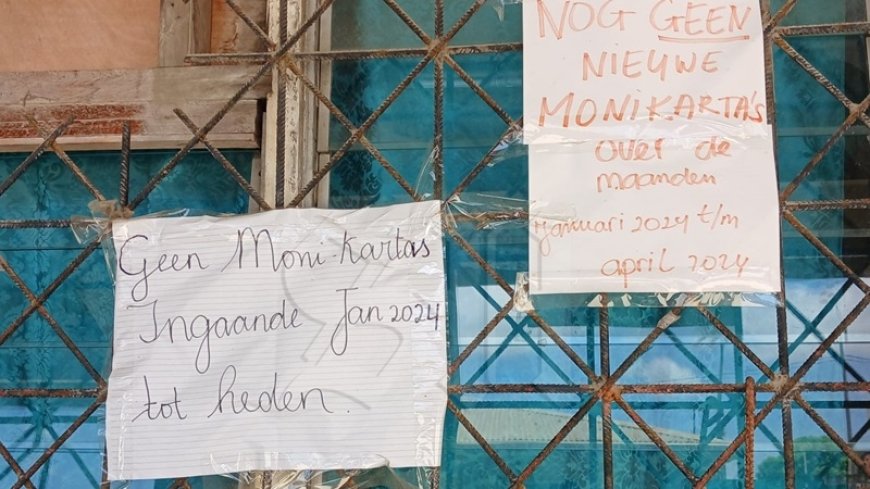 Geen Moni-kartas
Ingaande Jan 2024
tot heden.
NOG GEEN
NIEUWE
MONIKARTA'S
over de
maanden
januari 2024 t/m
april 2024